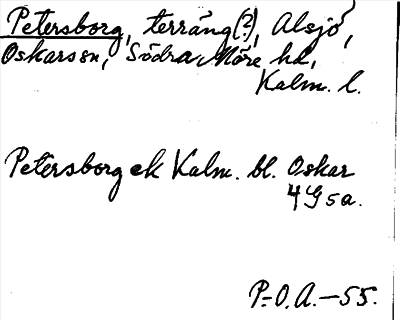 Petersborg, terräng(?), Alsjö,
Oskars sn, Södra Möre hd,
Kalm. l.
Petersborg ek Kalm. bl. Oskar
4G 5a.
P.-O. A. - 55.